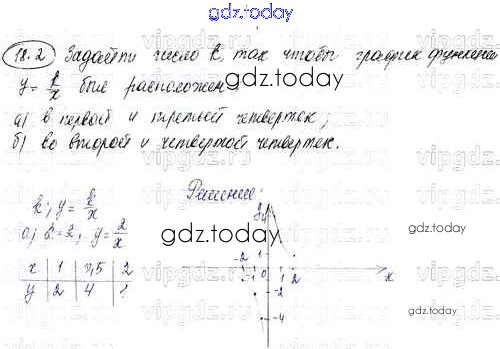 gdz.today
18.2 Задайти число k, так чтобы график функции
y = k/x был расположен
gdz.today
а) в первой и третьей четвертек;
б) во второй и четвертой четвертек.
Решение:
k; y = k/x
а) k = 2; y = 2/x
gdz.today
gdz.today
x 1 0,5 2
y 2 4 1
y
1
-2 -1 0 1 2 x
-2
-4
gdz.today